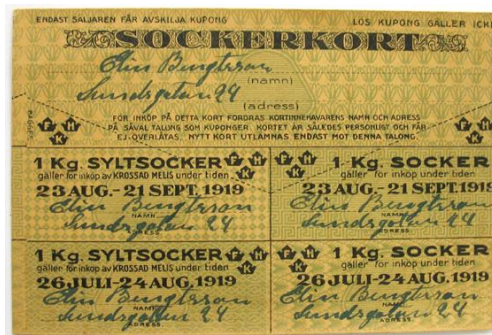 ENDAST SÄLJAREN FÅR AVSKILJA KUPONG LÖS KUPONG GÄLLER ICKE
SOCKERKORT
Elin Bengtsson
(namn)
Sundsgatan 24
(adress)
FÖR INKÖP PÅ DETTA KORT FORDRAS KORTINNEHAVARENS NAMN OCH ADRESS
PÅ SÅVÄL TALONG SOM KUPONGER. KORTET ÄR SÅLEDES PERSONLIGT OCH FÅR
EJ ÖVERLÅTAS. NYTT KORT UTLÄMNAS ENDAST MOT DENNA TALONG.
F H K
F H K
1 Kg. SYLTSOCKER F H K
gäller för inköp av KROSSAD MELIS under tiden
23 AUG.-21 SEPT. 1919
Elin Bengtsson
NAMN
Sundsgatan 24
ADRESS
1 Kg. SOCKER
gäller för inköp under tiden
23 AUG.-21 SEPT.1919
Elin Bengtsson
NAMN
Sundsgatan 24
ADRESS
1 Kg. SYLTSOCKER F H K
gäller för inköp av KROSSAD MELIS under tiden
26 JULI-24 AUG. 1919
Elin Bengtsson
NAMN
Sundsgatan 24
ADRESS
F H K 1 Kg. SOCKER
gäller för inköp under tiden
26 JULI-24 AUG.1919
Elin Bengtsson
NAMN
Sundsgatan 24
ADRESS